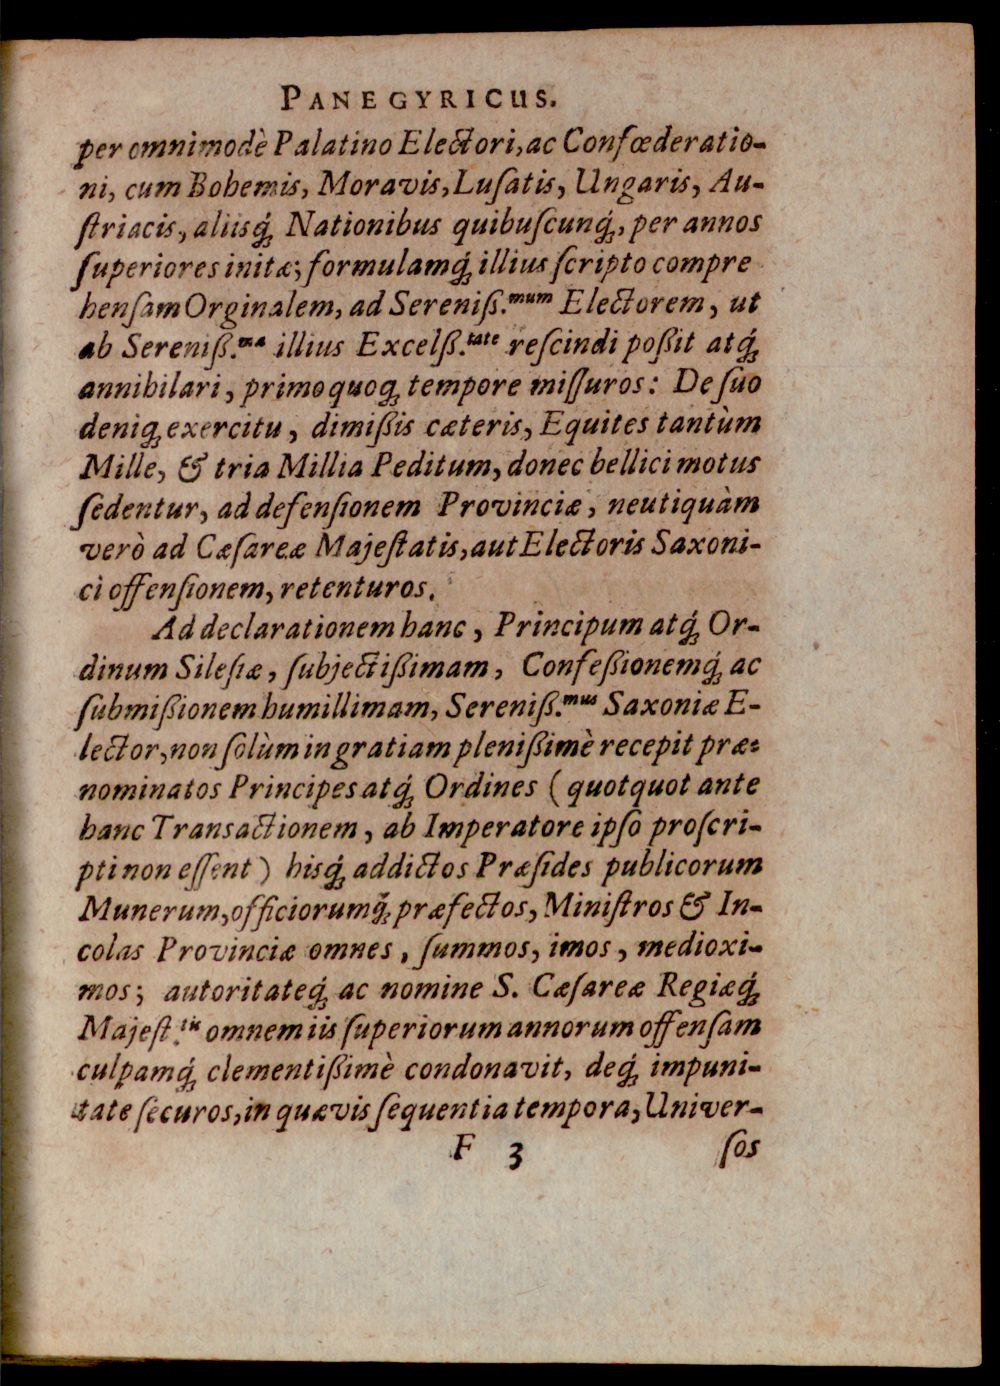 PANEGYRICUS.
per omnimodè Palatino Electori, ac Confœderatio-
ni, cum Bohemis, Moravis, Luſatis, Ungaris, Au-
ſtriacis, aliisq́; Nationibus quibuſcunq́;, per annos
ſuperiores initæ; formulamq́; illius ſcripto compre
henſam Orginalem, ad Sereniß.mum Electorem, ut
ab Sereniß.ma illius Excelß.tate reſcindi poßit atq́;
annihilari, primo quoq; tempore miſſuros: De ſuo
deniq; exercitu, dimißis cæteris, Equites tantùm
Mille, & tria Millia Peditum, donec bellici motus
ſedentur, ad defenſionem Provinciæ, neutiquàm
verò ad Cæſareæ Majeſtatis, aut Electoris Saxoni-
ci offenſionem, retenturos.
Ad declarationem hanc, Principum atq́; Or-
dinum Sileſiæ, ſubjectißimam, Confeßionemq́; ac
ſubmißionem humillimam, Sereniß.mus Saxoniæ E-
lector, non ſolùm in gratiam plenißimè recepit præ-
nominatos Principes atq́; Ordines (quotquot ante
hanc Transactionem, ab Imperatore ipſo proſcri-
pti non eſſent) hisq́; addictos Præſides publicorum
Munerum, officiorumq́; præfectos, Miniſtros & In-
colas Provinciæ omnes, ſummos, imos, medioxi-
mos; autoritateq́; ac nomine S. Cæſareæ Regiæq́;
Majeſt.tis omnem iis ſuperiorum annorum offenſam
culpamq́; clementißimè condonavit, deq́; impuni-
tate ſecuros, in quævis ſequentia tempora, Univer-
F 3 ſos